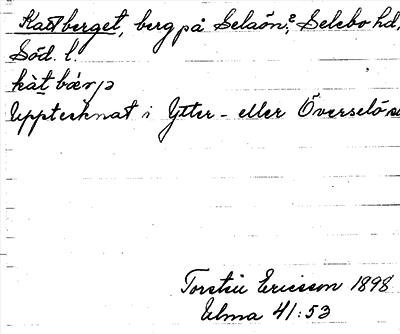 Kattberget, berg på Selaön?, Selebo hd,
Söd. l.
kàt bær̨
Upptecknat i Ytter- eller Överselö
Torsten Ericsson 1898
Ulma 41:53